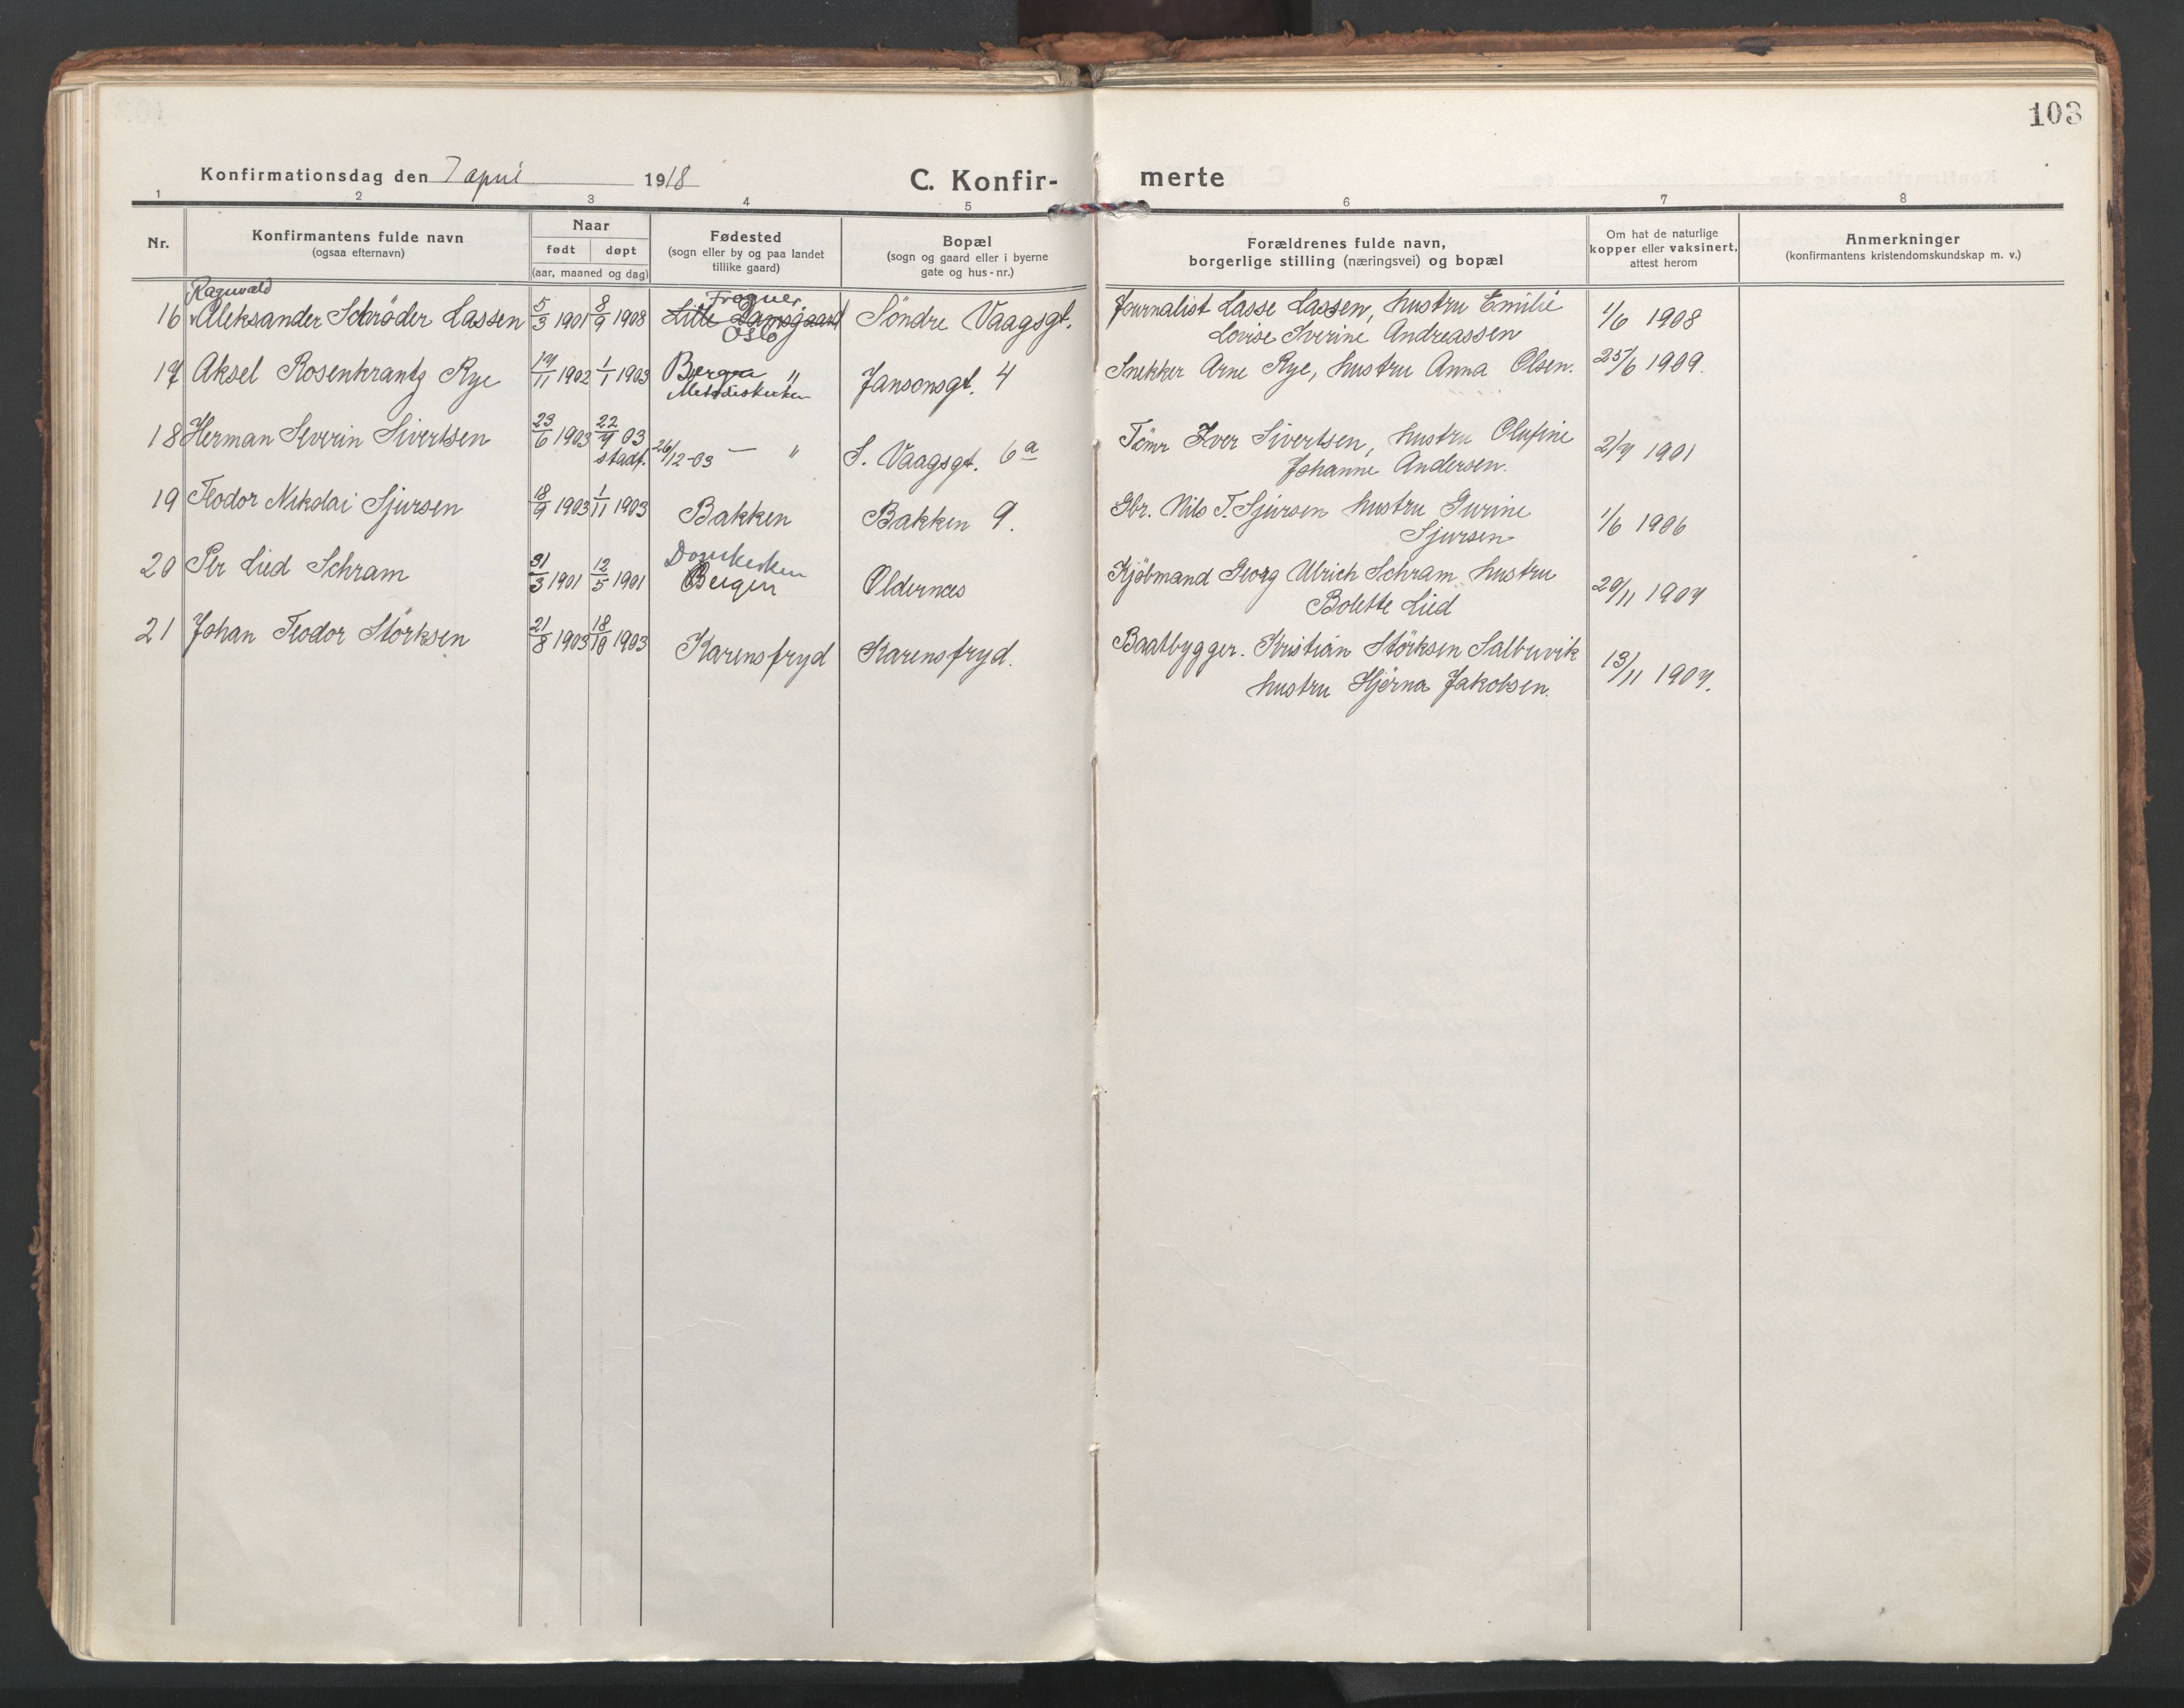 103
Konfirmationsdag den 7 april 1918
C. Konfir-
merte
1 2 3 4 5 6 7 8
Nr.
Konfirmantens fulde navn
(ogsaa efternavn)
Naar
født døpt
(aar, maaned og dag)
Fødested
(sogn eller by og paa landet
tillike gaard)
Bopæl
(sogn og gaard eller i byerne
gate og hus-nr.)
Forældrenes fulde navn,
borgerlige stilling (næringsvei) og bopæl
Om hat de naturlige
kopper eller vaksinert,
attest herom
Anmerkninger
(konfirmantens kristendomskundskap m. v.)
Ragnvald Frogner,
16 Aleksander Schrøder Lassen 5/3 1901 8/9 1908 Lille Damsgaard Søndre Vaagsgt. Journalist Lasse Lassen, hustru Emilie 1/6 1908
Oslo Lovise Iverine Andreassen
17 Aksel Rosenkrantz Rye 17/11 1902 1/1 1903 Bergen " Jansonsgt. 4 Snekker Arne Rye, hustru Anna Olsen. 25/6 1909.
Metodistkirken
18 Herman Severin Sivertsen 23/6 1903 22/9 03 — " S. Vaagsgt. 6a Tømr Iver Sivertsen, hustru Olufine 2/9 1901
stadf. 26/12-03 Johanne Andersen.
19 Teodor Nikolai Sjursen 18/9 1903 1/11 1903 Bakken Bakken 9. Gbr. Nils T. Sjursen hustru Gurine 1/6 1906
Sjursen
Domkirken
20 Per Lied Schram 31/3 1901 12/5 1901 Bergen Oldernes Kjöbmand Georg Ulrich Schram hustru 20/11 1907
Bolette Lied
21 Johan Teodor Störksen 21/8 1903 18/10 1903 Karensfryd Karensfryd. Baatbygger. Kristian Störksen Salbuvik 13/11 1907.
hustru Hjerna Jakobsen.